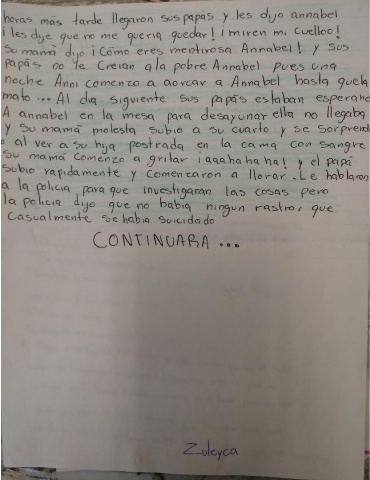 horas más tarde llegaron sus papás y les dijo annabel
¡les dije que no me queria quedar! ¡miren mi cuelloo!
Su mamá dijo ¡Cómo eres mentirosa Annabel! y sus
papás no le Creian a la pobre Annabel pues una
noche Anni comenzo a aorcar a Annabel hasta que la
mato... Al dia siguiente sus papás estaban esperan
A annabel en la mesa para desayunar ella no llegaba
y su mamá molesta subio a su cuarto y se sorprend
o al ver a su hija postrada en la cama con sangre
su mamá comenzo a gritar ¡aaahahaha! y el papá
subio rapidamente y comenzaron a llorar. Le hablaron
a la policia para que investigaran las cosas pero
la policia dijo que no habia ningun rastro, que
casualmente se habia suicidado
CONTINUARA ...
Zuleyca